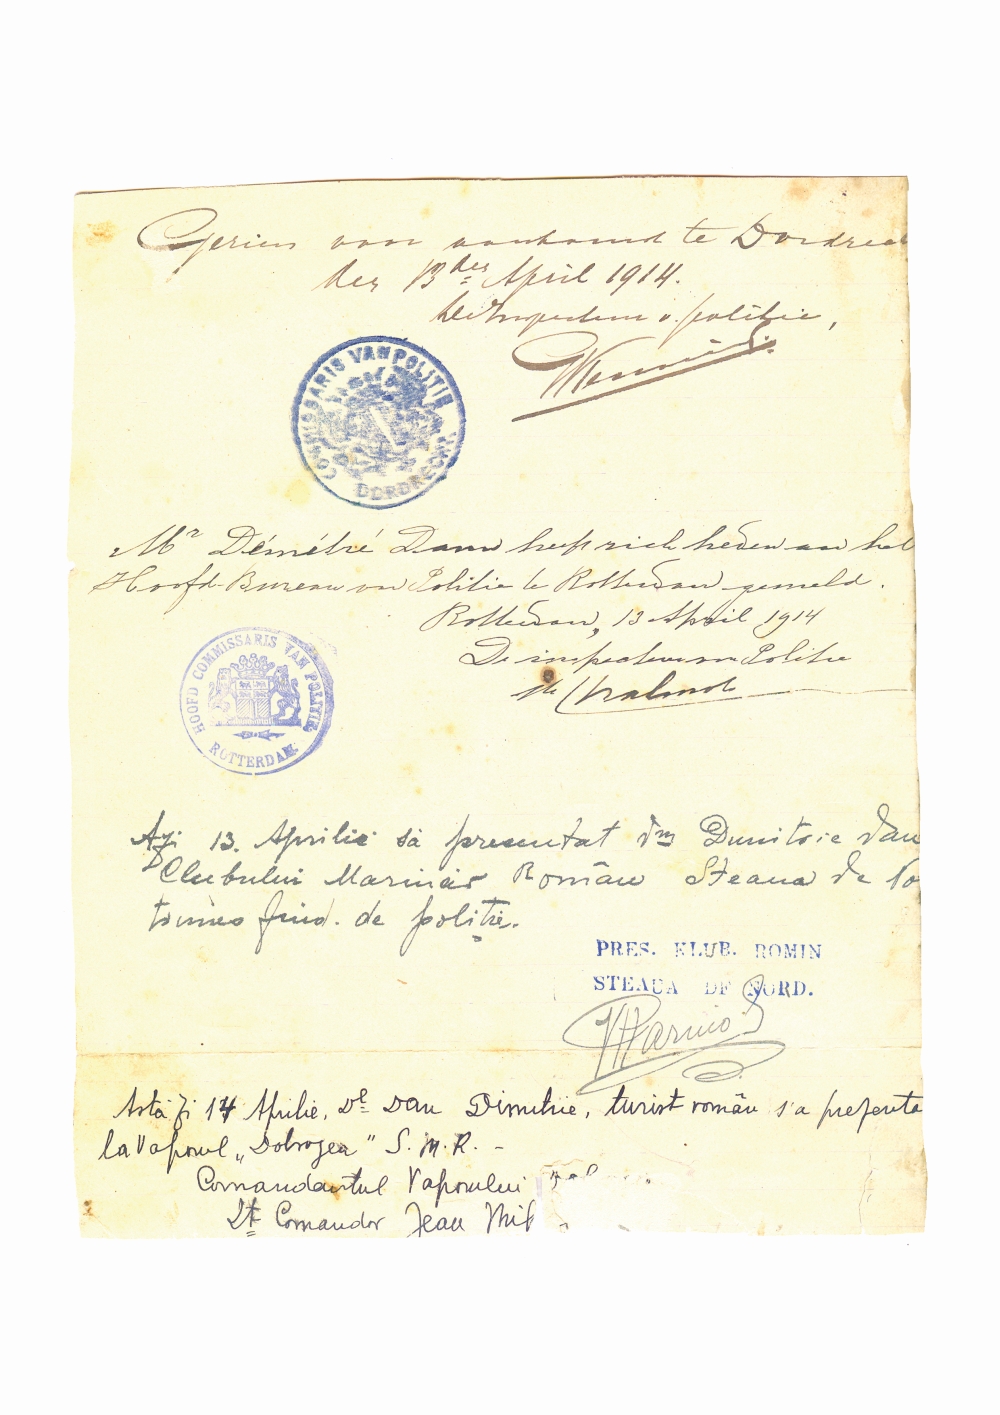 Gezien voor aankomst te Dordrec
den 13den April 1914.
De Inspecteur v. politie,
COMMISSARIS VAN POLITIE
DORDRECHT
Mr Démétré Dan heeft zich heden aan het
Hoofd-Bureau van Politie te Rotterdam gemeld.
Rotterdam, 13 April 1914
De inspecteur van Politie
HOOFD COMMISSARIS VAN POLITIE
ROTTERDAM
Azi 13. Aprilie sa presentat Dumitrie Dan
Clubului Marinar Român Steaua de
de poliție.
PRES. KLUB. ROMIN
STEAUA DE NORD.
Astăzi 14 Aprilie, Dl Dan Dimitrie, turist român s'a prezenta
la Vaporul „Dobrogea" S.M.R. -
Comandantul Vaporului
Lt Comandor Jean Mih